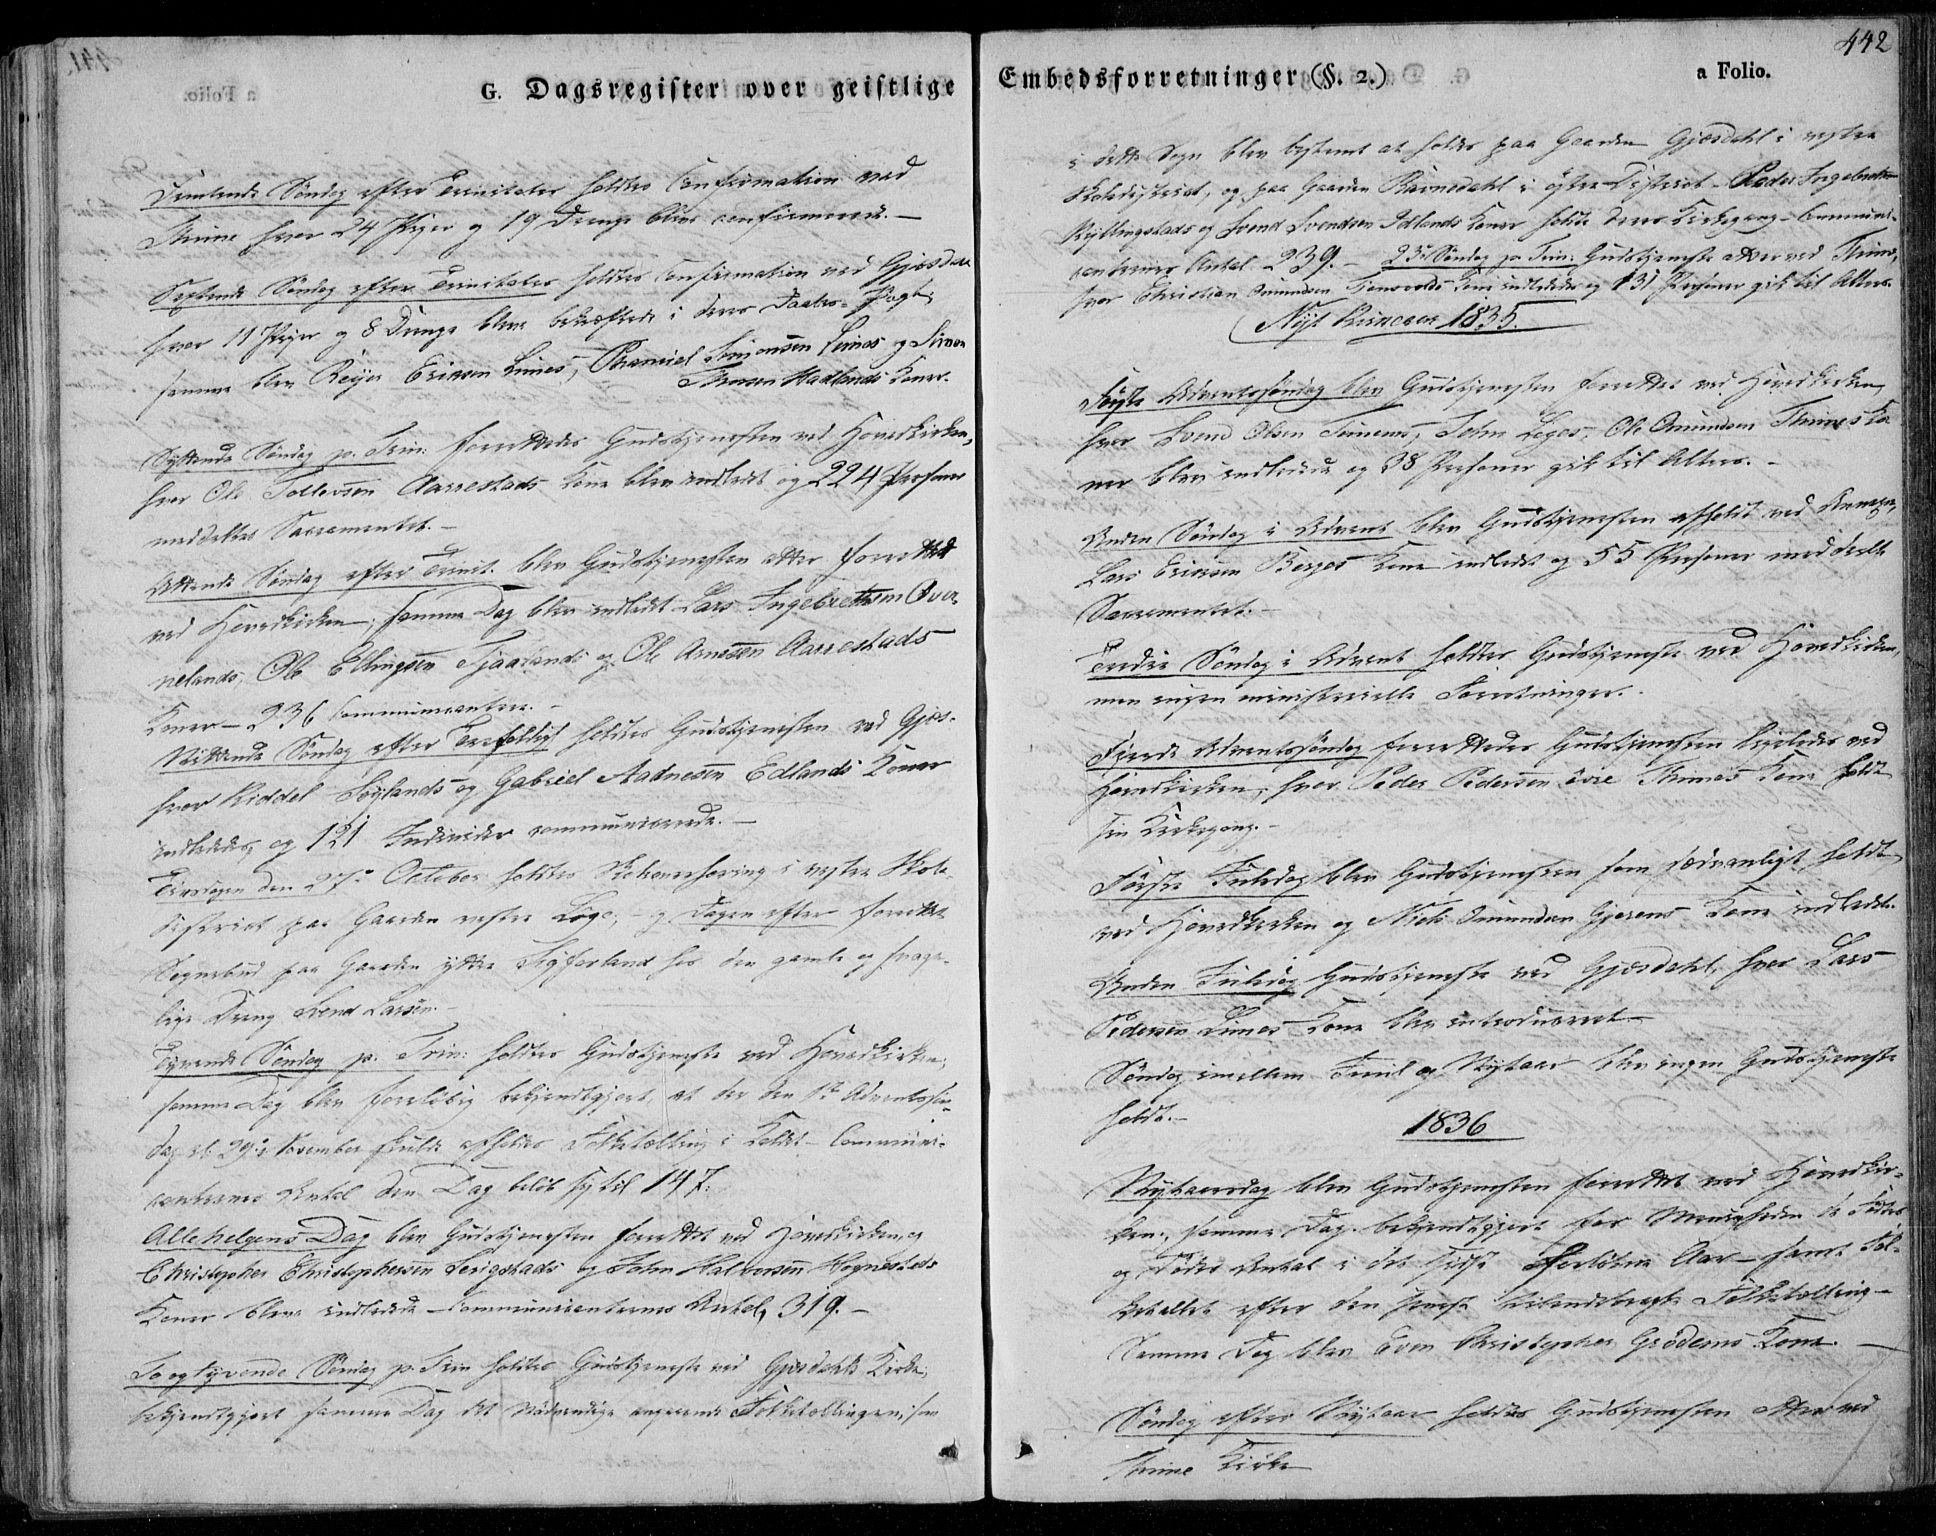 G. Dagsregister over geistlige
Femtende Søndag efter Trinitates holdtes Confirmation ved
Thime hvor 24 Piger og 19 Drenge blive confirmerede. —
Sextende Søndag efter Trinitates holdtes Confirmation ved Gjesdal
hvor 11 Piger og 8 Drenge bleve bekræftede i deres Daabs-Pagt,
samme blev Reyer Ericsen Limes, Simonsen Limes og Simon
Thorsen Madlands Koner.
Syttende Søndag p. Trin: forrettedes Gudstjenesten ved Hovedkirken,
hvor Ole Tollevsen Aarrestads Kone blev indledet og 224 Personer
meddeltes Sacramentet. —
Attende Søndag efter Trinit. blev Gudstjenesten atter forrettet
ved Hovedkirken; samme Dag blev indledt Lars Ingebretsen Over-
nelands, Ole Ellingsen Tjaalands og Ole Arnessen Aarrestads
Koner — 236 Communicantere. —
Nittende Søndag efter Trefoldigh holdtes Gudstjenesten ved Gjes-
hvor Riddel Søylands og Gabriel Aadnesen Edlands Koner
indlededes, og 121 Individer communicerede. —
Tirsdagen den 27de October holdtes i vestre Skole-
district paa Gaarden vestre Lyge, — og Dagen efter forrettet
Sognebud paa Gaarden ydtre Sigferland hos den gamle og svage-
lige Dreng Svend Larsen. —
Tyvende Søndag p. Trin: holdtes Gudstjeneste ved Hovedkirken;
samme Dag blev foreløbig bekjendtgjort, at der den 1ste Adventssøn-
dag d. 29de November skulde afholdes Folketælling i Kaldet — Communi-
canternes Antal den Dag beløb sig til 147.
Allehelgens Dag blev Gudstjenesten forrettet ved Hovedkirken, og
Christopher Christophersen Lerigstads og John Halvorsen Hognestads
Koner bleve indledede — Communicanternes Antal, 319. —
To og tyvende Søndag p. Trin holdtes Gudstjeneste ved Gjesdahls Kirke;
bekjendtgjort samme Dag det Nødvendige angaaende Folketællingen, som
442
Embedsforretninger (§. 2.)
a Folio.
i dette Sogn blev bestemt at holdes paa Gaarden Gjesdahl i vestre
Skoledistrict, og paa Gaarden Ravnedahl i østre District — Peder Ingebretsen
Kyllingstads og Svend Svendsen Edlands Koner holdt deres Kirkegang — Communi-
canternes Antal 239. — 23de Søndag p. Trin: Gudstjeneste atter ved Thime,
hvor Christian Omundsen Kone indlededes og 131 Personer gik til Alters.
Nyt Kirkeaar 1835.
Første Adventssøndag blev Gudstjenesten forrettet ved Hovedkirken,
hvor Svend Olsen, John Lyges, Ole Omundsen Thimes Ko-
ner bleve indledede og 38 Personer gik til Alters. —
Anden Søndag i Advent blev Gudstjenesten afholdt ved Annexet,
Lars Ericsen Berges Kone indledet og 55 Personer meddeelte
Sacramentet. —
Tredie Søndag i Advent holdtes Gudstjeneste ved Hovedkirken,
men ingen ministerielle Forretninger.
Fjerde Adventssøndag forrettedes Gudstjenesten ligeledes ved
Hovedkirken, hvor Peder Pedersen øvre Thimes Kone holdt
sin Kirkegang. —
Første Juledag blev Gudstjenesten som sædvanligt holdt
ved Hovedkirken og Niels Omundsen Gjerens Kone indledet.
Anden Juledag Gudstjeneste ved Gjesdahl, hvor Lars
Pedersen Limes Kone blev introduceret —
Søndag imellem Juul og Nytaar blev ingen Gudstjeneste
holdt. —
1836
Nytaarsdag blev Gudstjenesten forrettet ved Hovedkir-
ken, samme Dag bekjendtgjort for Menigheden de Fødtes
og Dødes Antal i det sidst forløbne Aar — samt Fol-
ketallet efter den senest Folketælling —
Samme Dag blev Even Christopher Grødems Kone. —
Søndag efter Nytaar holdtes Gudstjenesten atter ved
Thime Kirke